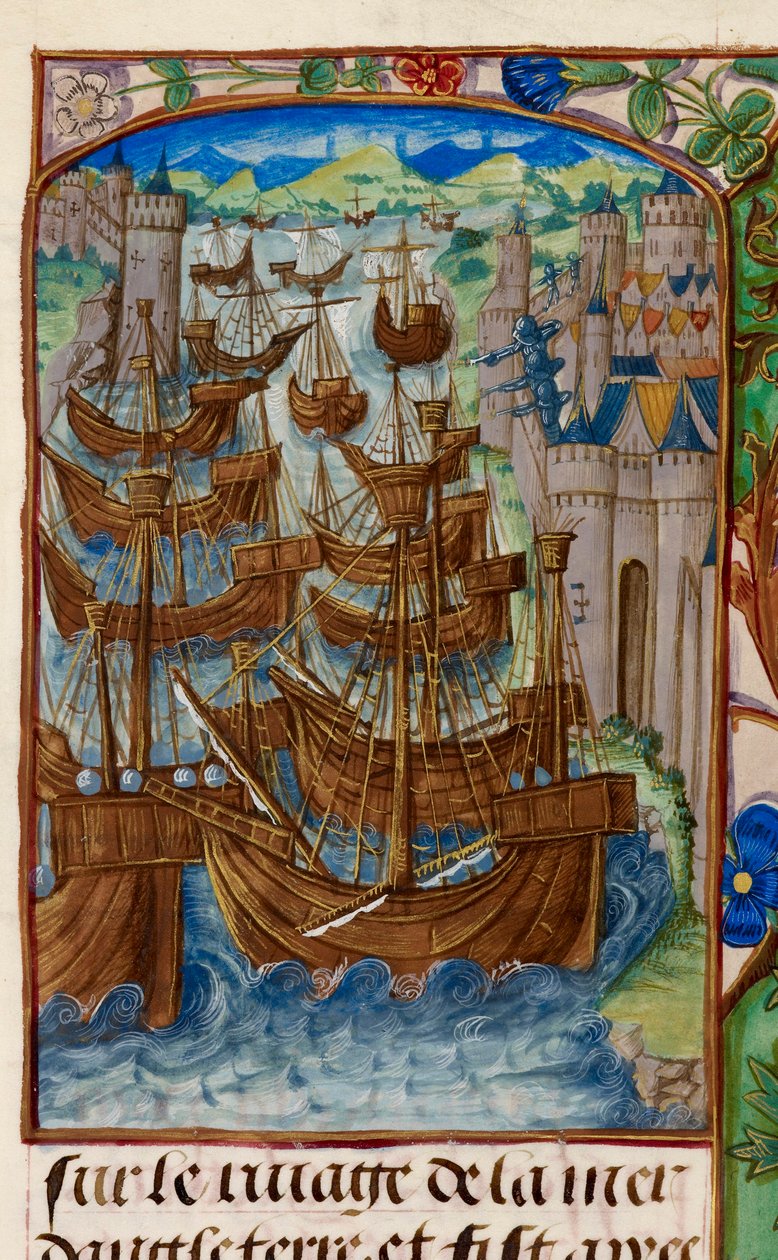 sur le riuage de la mer
dangleterre et fist